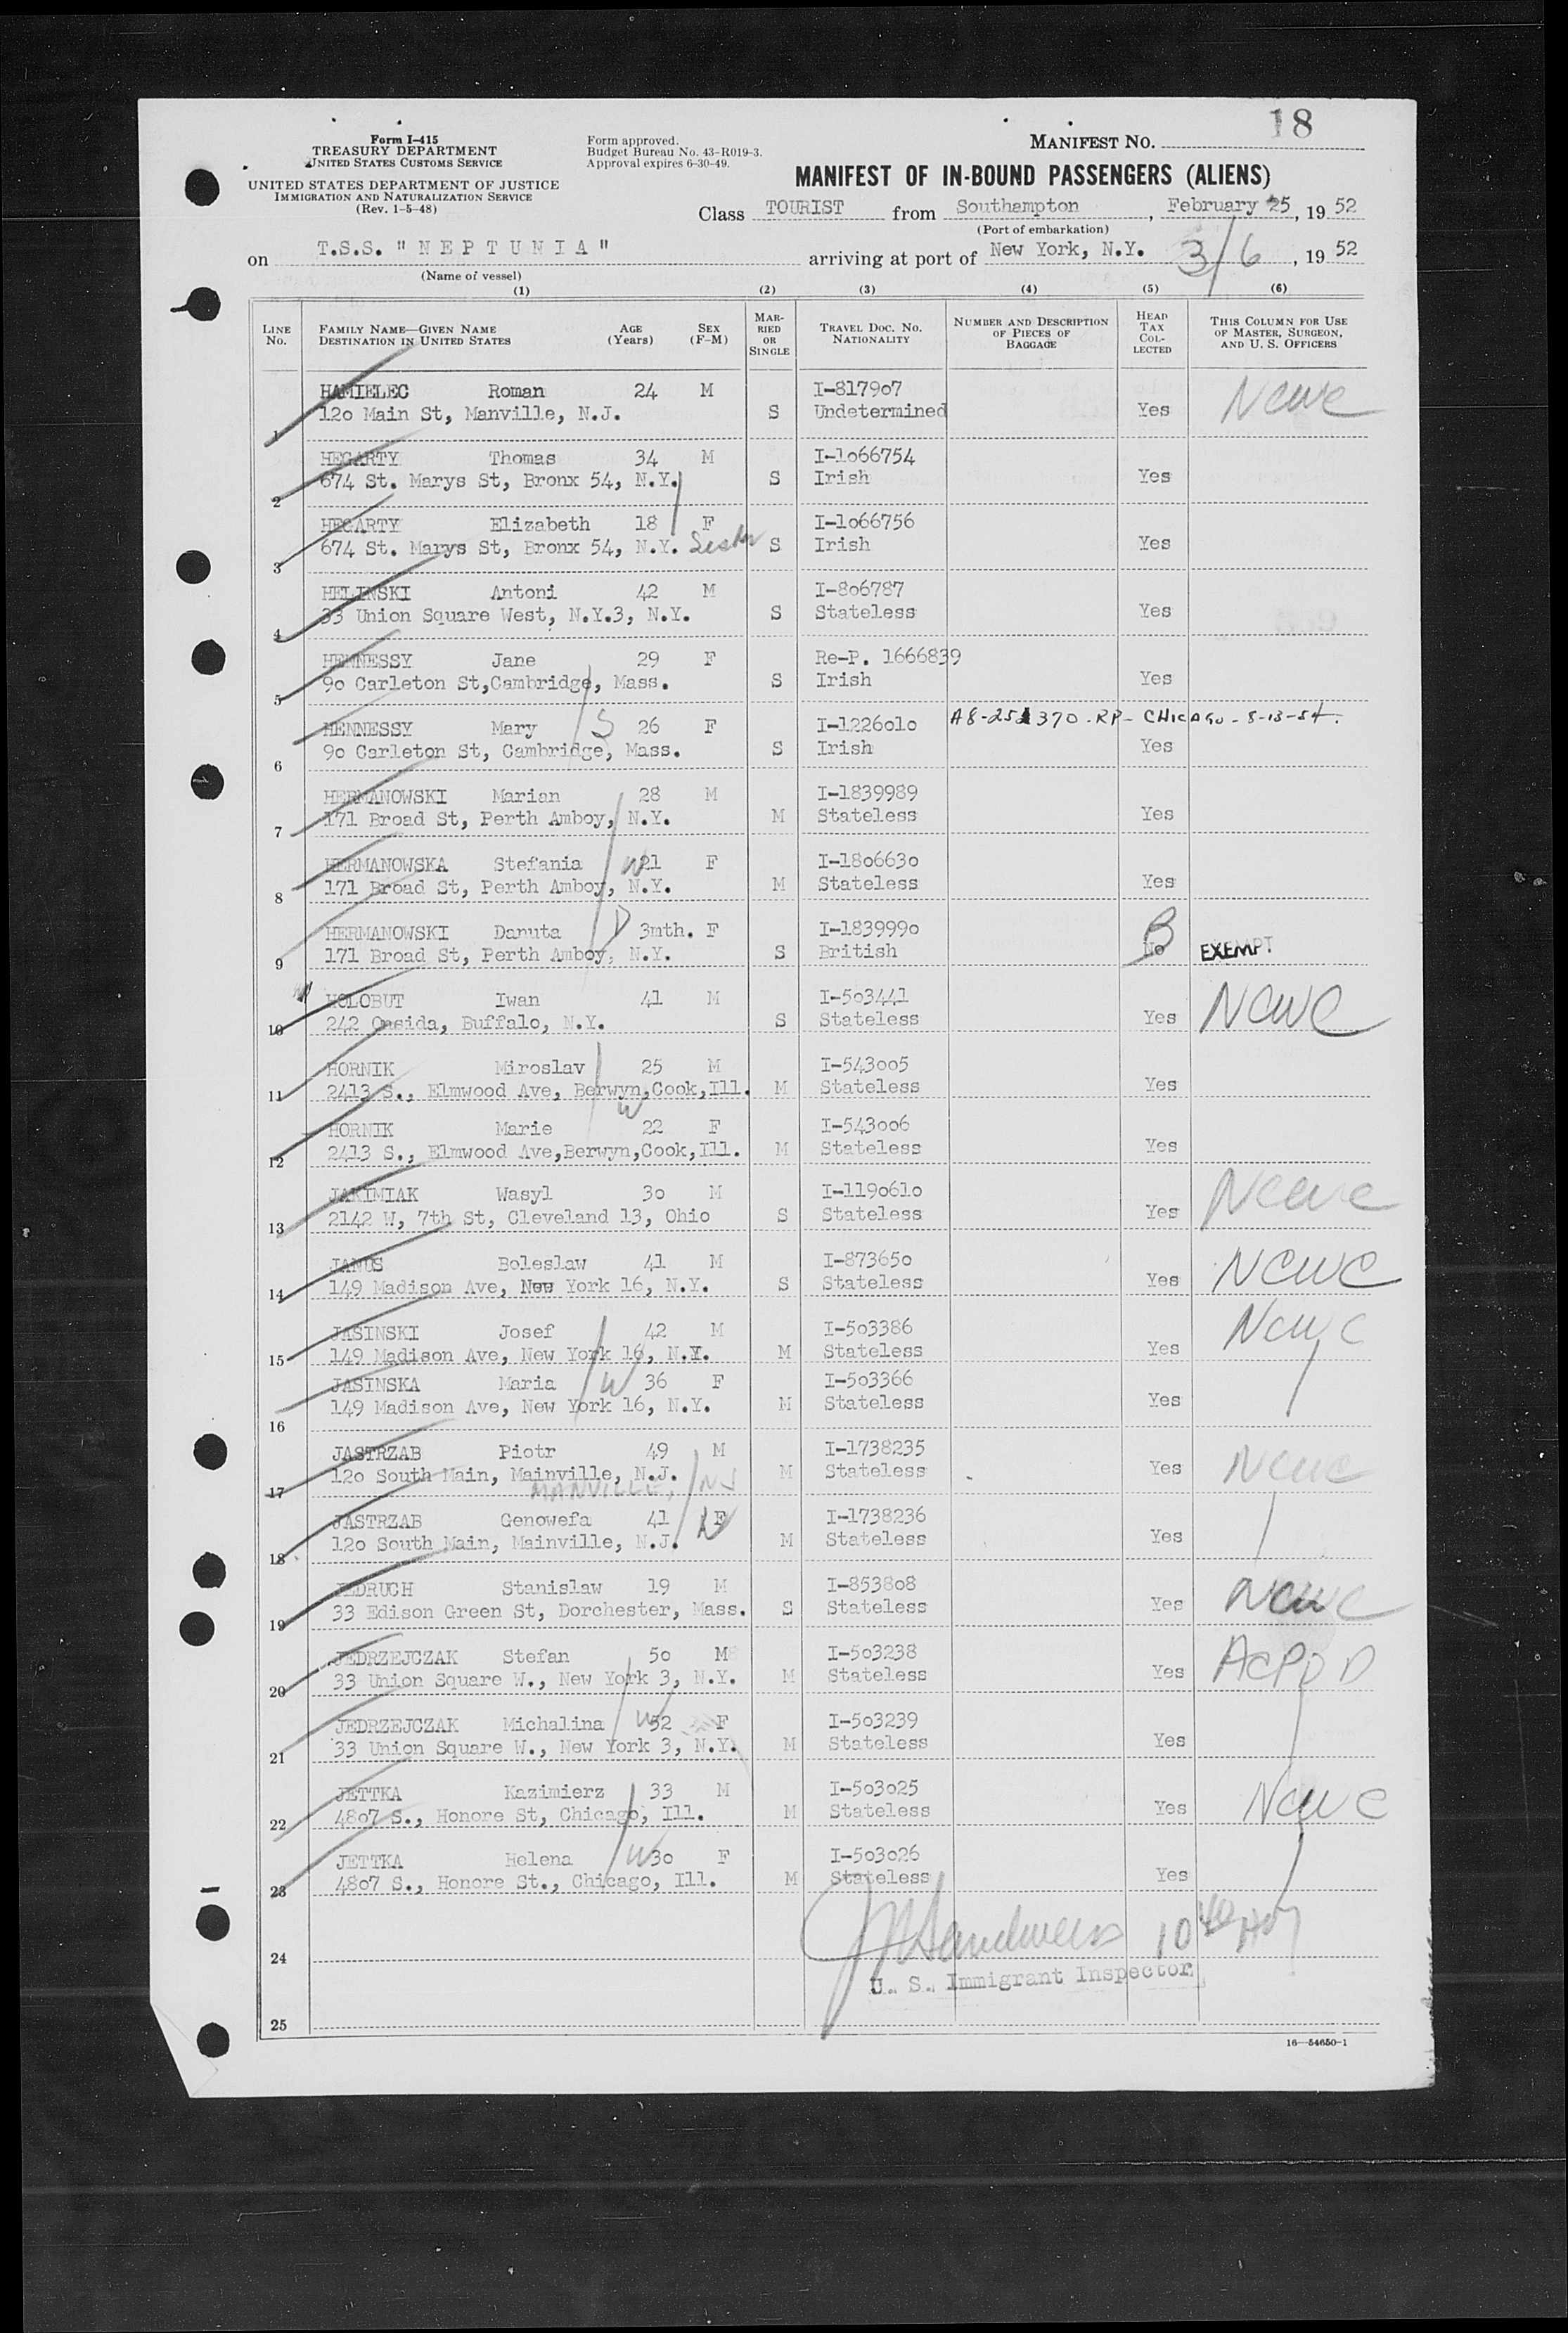 18
Form I-415
TREASURY DEPARTMENT
UNITED STATES CUSTOMS SERVICE
UNITED STATES DEPARTMENT OF JUSTICE
IMMIGRATION AND NATURALIZATION SERVICE
(Rev. 1-5-48)
Form approved.
Budget Bureau No. 43-R019-3.
Approval expires 6-30-49.
MANIFEST NO.
MANIFEST OF IN-BOUND PASSENGERS (ALIENS)
Class TOURIST from Southampton, February 25, 19 52
(Port of embarkation)
on T.S.S. "NEPTUNIA" arriving at port of New York, N.Y. 3/6, 19 52
(Name of vessel)
(1) (2) (3) (4) (5) (6)
LINE No. FAMILY NAME—GIVEN NAME DESTINATION IN UNITED STATES AGE (Years) SEX (F-M) MARRIED OR SINGLE TRAVEL DOC. NO. NATIONALITY NUMBER AND DESCRIPTION OF PIECES OF BAGGAGE HEAD TAX COLLECTED THIS COLUMN FOR USE OF MASTER, SURGEON, AND U. S. OFFICERS
HAMIELEC Roman 24 M I-817907 NCWC
1 120 Main St, Manville, N.J. S Undetermined Yes
HEGARTY Thomas 34 M I-1066754
2 674 St. Marys St, Bronx 54, N.Y. S Irish Yes
HEGARTY Elizabeth 18 F I-1066756
3 674 St. Marys St, Bronx 54, N.Y. Sister S Irish Yes
HELINSKI Antoni 42 M I-806787
4 33 Union Square West, N.Y.3, N.Y. S Stateless Yes
HENNESSY Jane 29 F Re-P. 1666839
5 90 Carleton St,Cambridge, Mass. S Irish Yes
HENNESSY Mary S 26 F I-1226010 A8-251370-RP-CHICAGO-8-13-54.
6 90 Carleton St, Cambridge, Mass. S Irish Yes
HERMANOWSKI Marian 28 M I-1839989
7 171 Broad St, Perth Amboy, N.Y. M Stateless Yes
HERMANOWSKA Stefania W 21 F I-1806630
8 171 Broad St, Perth Amboy, N.Y. M Stateless Yes
HERMANOWSKI Danuta D 3mth. F I-1839990 B
9 171 Broad St, Perth Amboy, N.Y. S British No EXEMPT
HOLOBUT Iwan 41 M I-503441 NCWC
10 242 Oneida, Buffalo, N.Y. S Stateless Yes
HORNIK Miroslav 25 M I-543005
11 2413 S., Elmwood Ave, Berwyn,Cook,Ill. M Stateless Yes
W
HORNIK Marie 22 F I-543006
12 2413 S., Elmwood Ave,Berwyn,Cook,Ill. M Stateless Yes
JAKIMIAK Wasyl 30 M I-1190610 NCWC
13 2142 W, 7th St, Cleveland 13, Ohio S Stateless Yes
JANUS Boleslaw 41 M I-873650 NCWC
14 149 Madison Ave, New York 16, N.Y. S Stateless Yes
JASINSKI Josef 42 M I-503386 NCWC
15 149 Madison Ave, New York 16, N.Y. M Stateless Yes
JASINSKA Maria W 36 F I-503366
16 149 Madison Ave, New York 16, N.Y. M Stateless Yes
JASTRZAB Piotr 49 M I-1738235 NCWC
17 120 South Main, Mainville, N.J. M Stateless Yes
MANVILLE, NJ
JASTRZAB Genowefa 41 W F I-1738236
18 120 South Main, Mainville, N.J. M Stateless Yes
JEDRUCH Stanislaw 19 M I-853808 NCWC
19 33 Edison Green St, Dorchester, Mass. S Stateless Yes
JEDRZEJCZAK Stefan 50 M I-503238 ACPD
20 33 Union Square W., New York 3, N.Y. M Stateless Yes
JEDRZEJCZAK Michalina W 52 F I-503239
21 33 Union Square W., New York 3, N.Y. M Stateless Yes
JETTKA Kazimierz 33 M I-503025 NCWC
22 4807 S., Honore St, Chicago, Ill. M Stateless Yes
JETTKA Helena W 30 F I-503026
23 4807 S., Honore St., Chicago, Ill. M Stateless Yes
24
U. S. Immigrant Inspector
25
16—54650-1